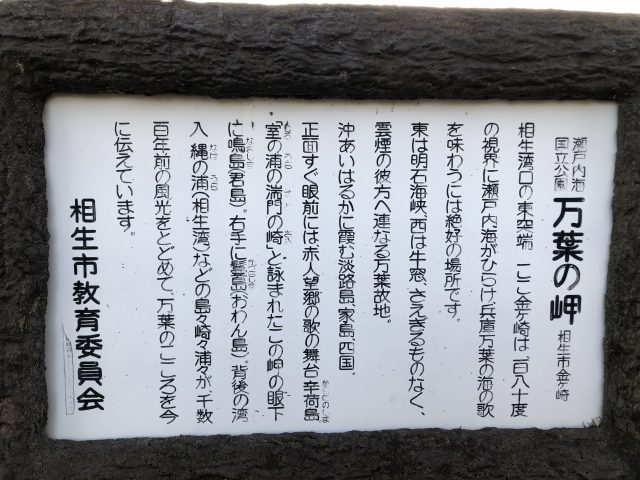 瀬戸内海
国立公園
万葉の岬 相生市金ヶ崎
相生湾口の東突端、ここ金ヶ崎は一百八十度
の視界に瀬戸内海がひらけ、兵庫万葉の海の歌
を味わうには絶好の場所です。
東は明石海峡、西は牛窓、さえぎるものなく、
雲煙の彼方へ連なる万葉故地。
沖あいはるかに霞む淡路島、家島、四国、
正面すぐ眼前には赤人望郷の歌の舞台辛荷島
「室の浦の湍門の崎」と詠まれたこの岬の眼下
に鳴島(君島)。右手に蔓島(おわん島)。背後の湾
入 縄の浦(相生湾)などの島々崎々浦々が、千数
百年前の風光をとどめて、万葉のこころを今
に伝えています。
相生市教育委員会